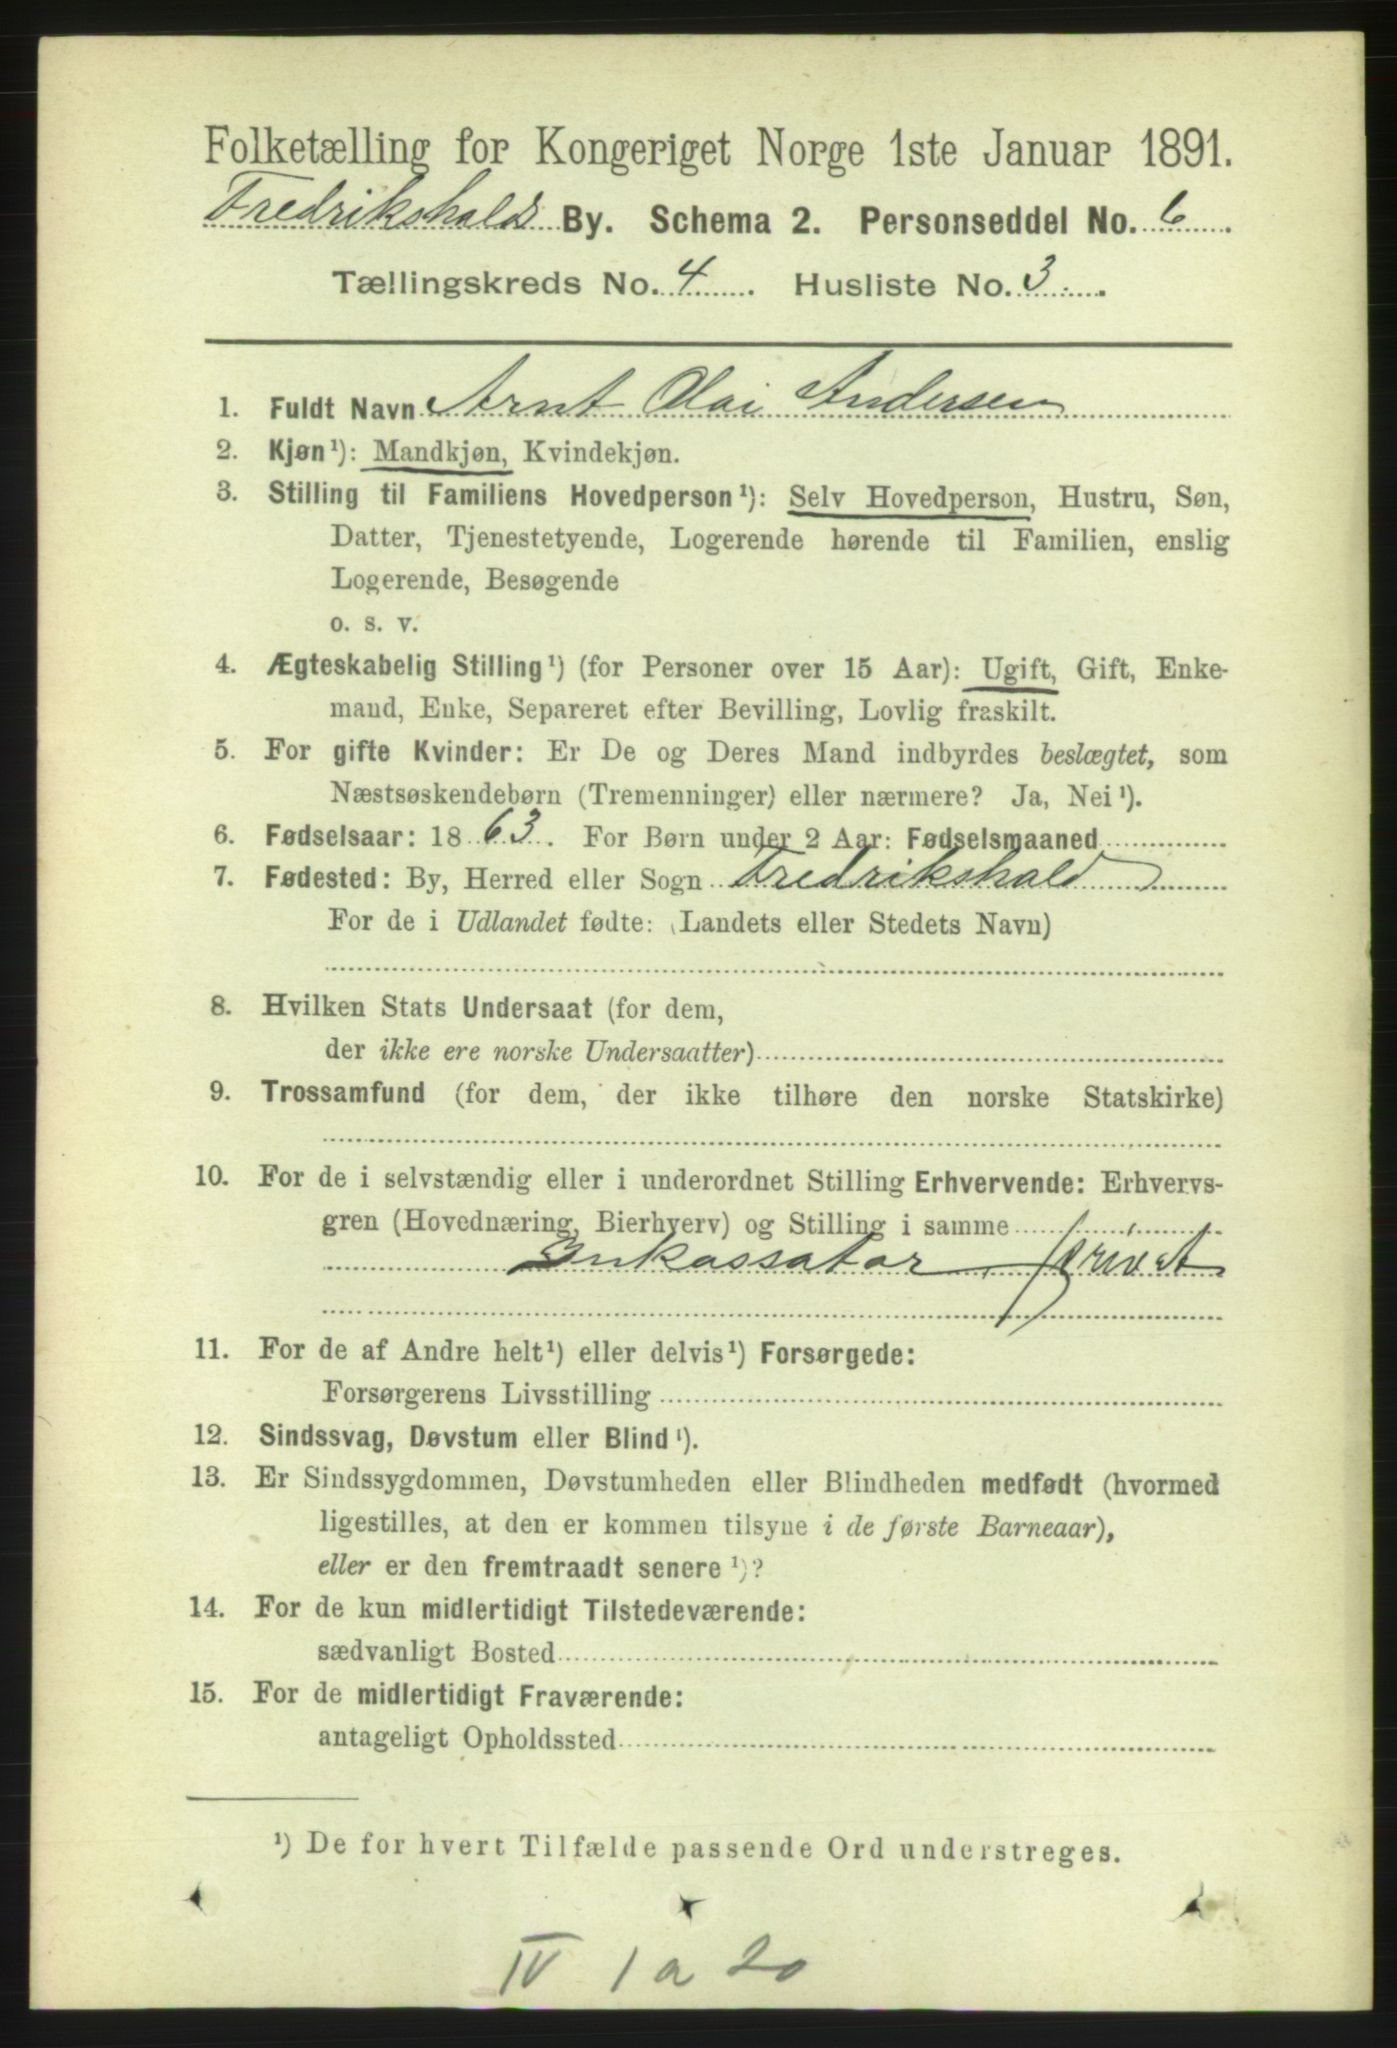 Folketælling for Kongeriget Norge 1ste Januar 1891.
Fredrikshalds By. Schema 2. Personseddel No. 6.
Tællingskreds No. 4. Husliste No. 3.
1. Fuldt Navn Arnt Olai Andersen
2. Kjøn¹): Mandkjøn, Kvindekjøn.
3. Stilling til Familiens Hovedperson¹): Selv Hovedperson, Hustru, Søn,
Datter, Tjenestetyende, Logerende hørende til Familien, enslig
Logerende, Besøgende
o. s. v.
4. Ægteskabelig Stilling¹) (for Personer over 15 Aar): Ugift, Gift, Enke-
mand, Enke, Separeret efter Bevilling, Lovlig fraskilt.
5. For gifte Kvinder: Er De og Deres Mand indbyrdes beslægtet, som
Næstsøskendebørn (Tremenninger) eller nærmere? Ja, Nei¹).
6. Fødselsaar: 1863. For Børn under 2 Aar: Fødselsmaaned
7. Fødested: By, Herred eller Sogn Fredrikshald
For de i Udlandet fødte: (Landets eller Stedets Navn)
8. Hvilken Stats Undersaat (for dem,
der ikke ere norske Undersaatter)
9. Trossamfund (for dem, der ikke tilhøre den norske Statskirke)
10. For de i selvstændig eller i underordnet Stilling Erhvervende: Erhvervs-
gren (Hovednæring, Bierhverv) og Stilling i samme
Inkassator privat
11. For de af Andre helt¹) eller delvis¹) Forsørgede:
Forsørgerens Livsstilling
12. Sindssvag, Døvstum eller Blind¹).
13. Er Sindssygdommen, Døvstumheden eller Blindheden medfødt (hvormed
ligestilles, at den er kommen tilsyne i de første Barneaar),
eller er den fremtraadt senere¹)?
14. For de kun midlertidigt Tilstedeværende:
sædvanligt Bosted
15. For de midlertidigt Fraværende:
antageligt Opholdssted
¹) De for hvert Tilfælde passende Ord understreges.
IV 1 a 20